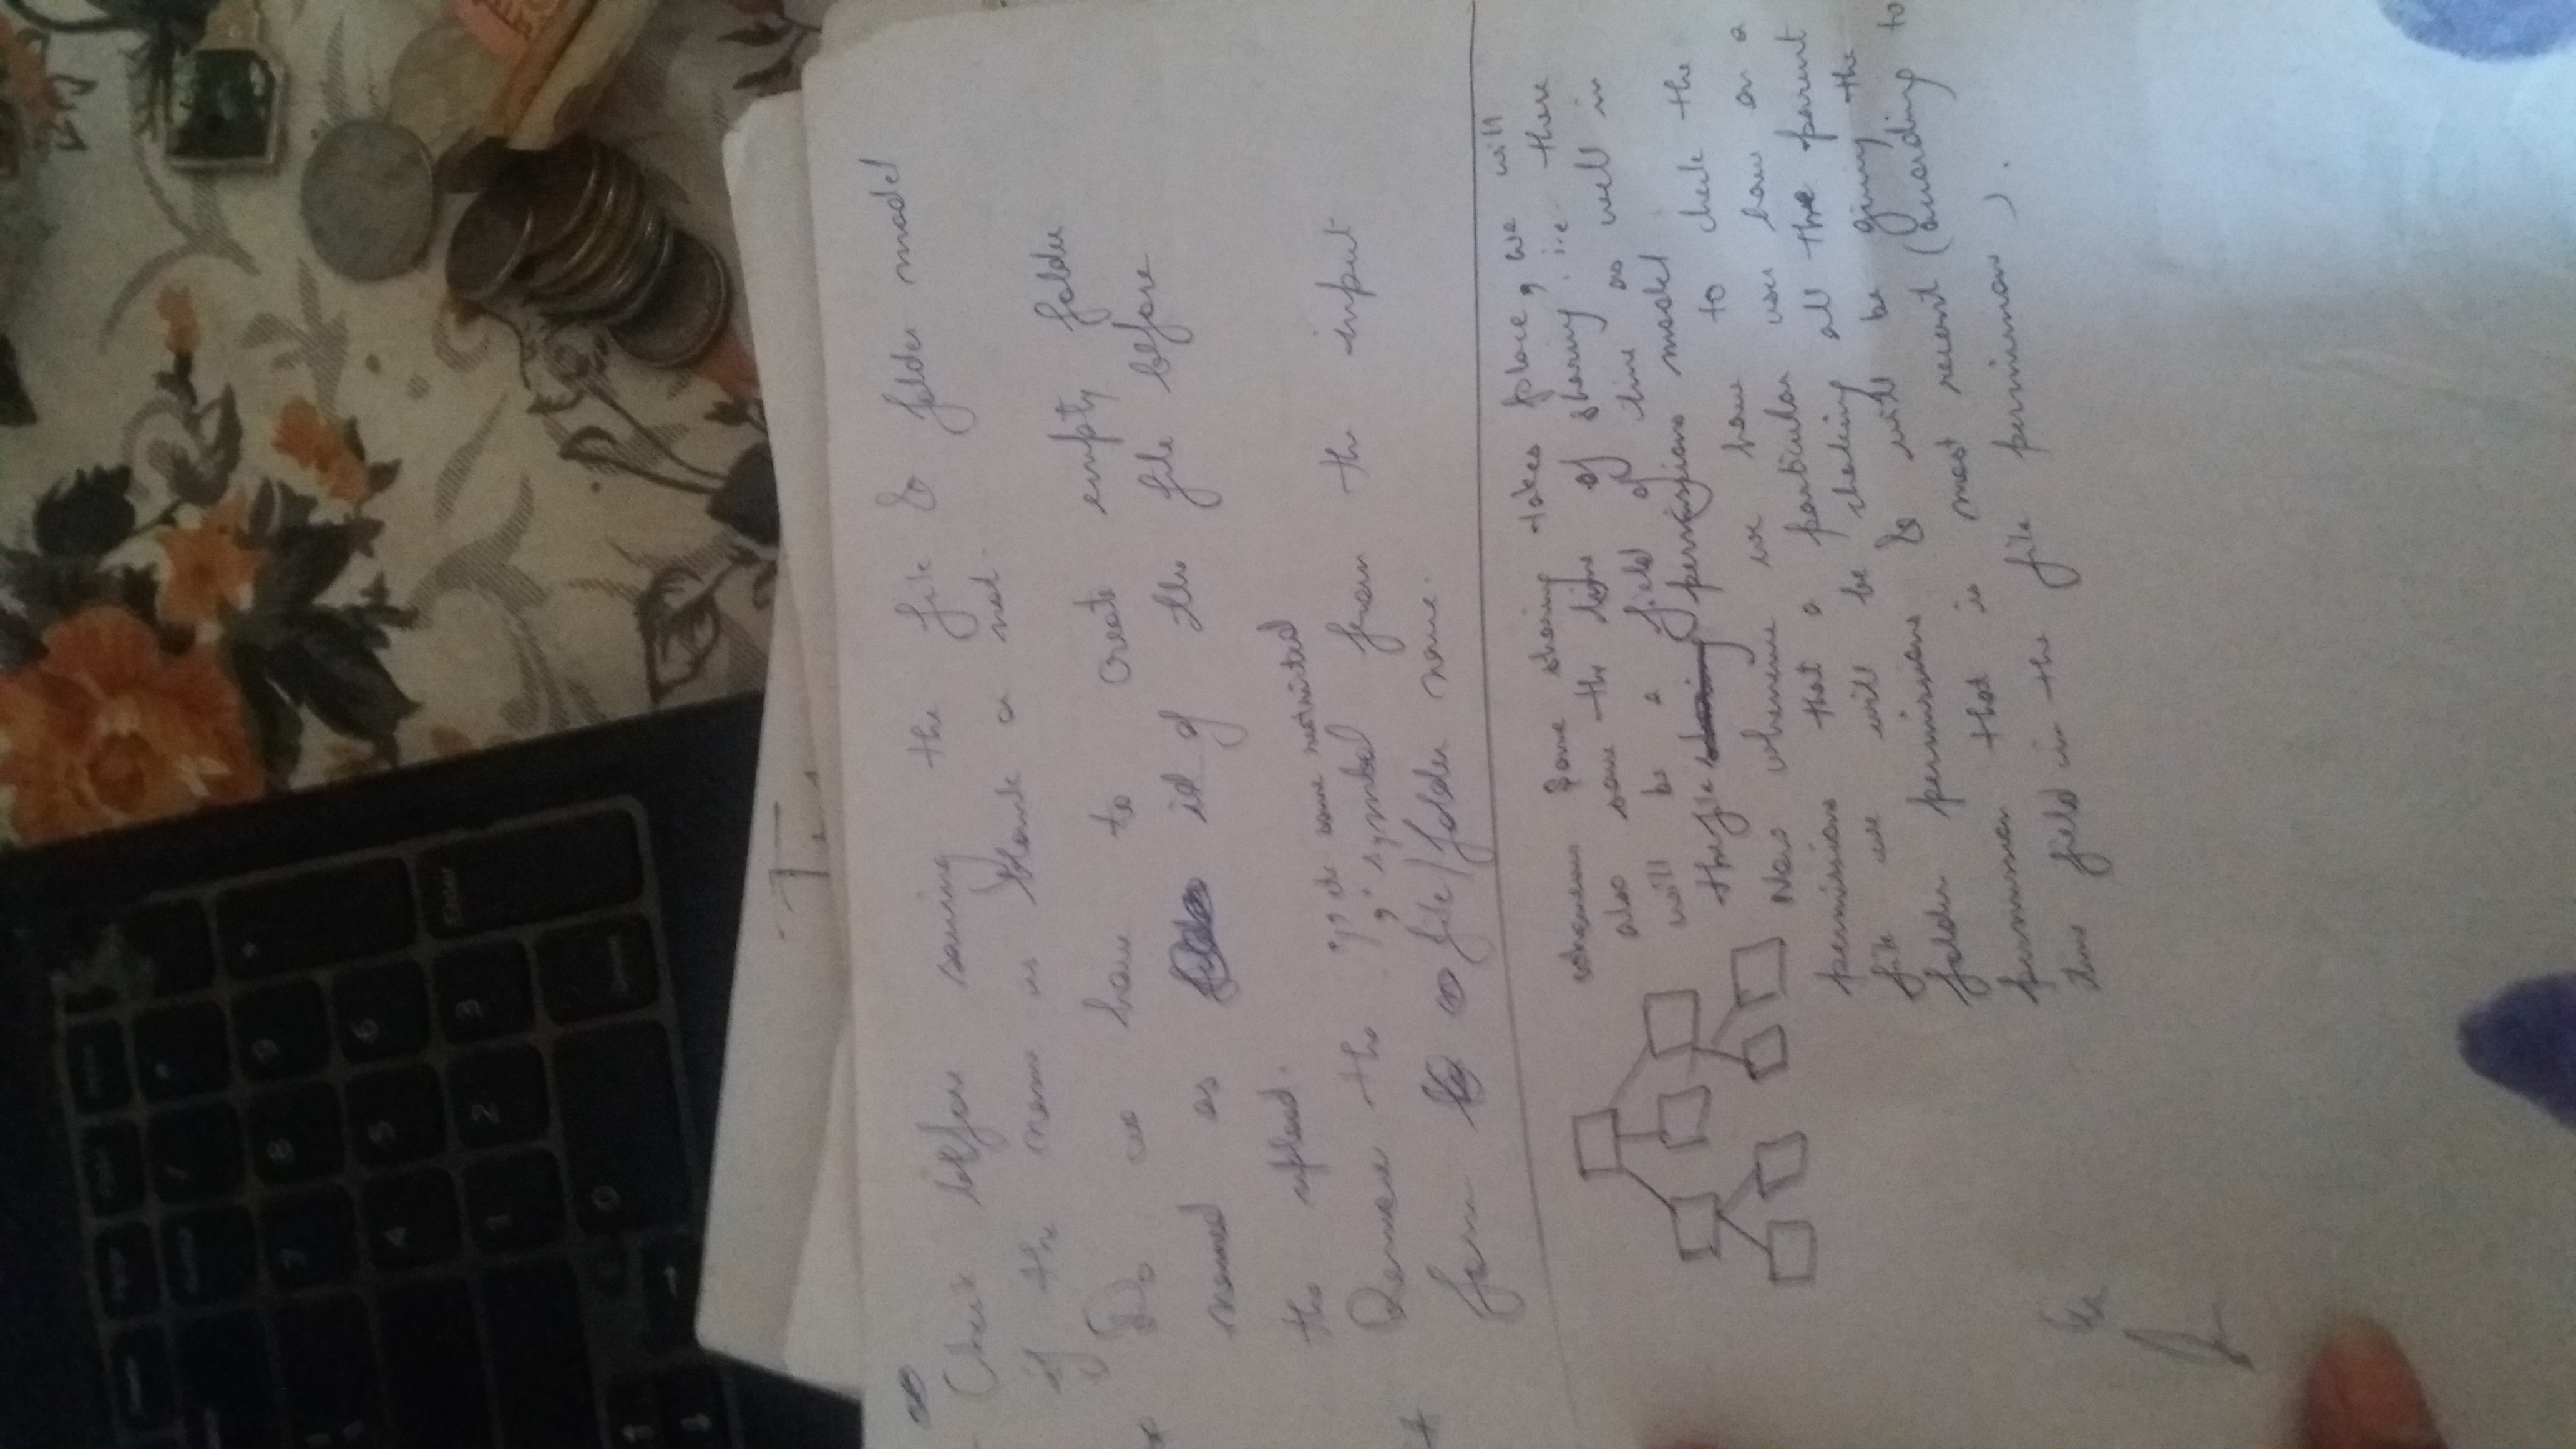 7 8 9
4 5 6
1 2 3 Enter
0 Delete
Check before saving the file & folder model
if the name is blank or not.
* Do we have to create empty folder
named as id of the file before
the upload.
etc some restricted
* Remove the symbol from the input
form file/folder name.
whenever some sharing takes place, we will
also save the time of sharing. i.e. there
will be a field of time as well in
the file permissions model
Now whenever we have to check the
permissions that a particular user have on a
file we will be checking all the parent
folder permissions & will be giving the
permission that is most recent (according to
time field in the file permission).